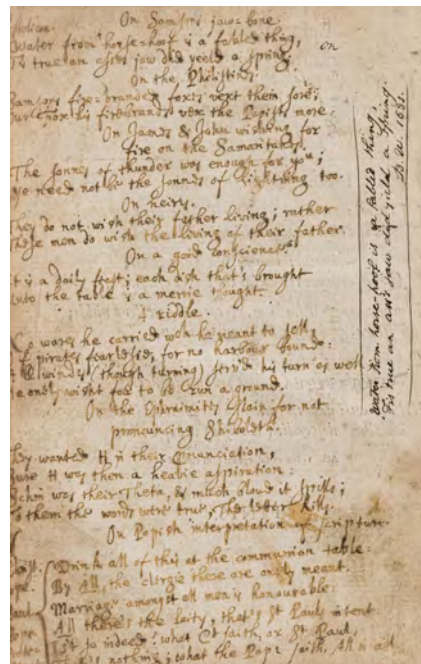 On Samsons jaw-bone.
Water from horse-hoof is a fabled thing,
Tis true an asses jaw did yeeld a spring.
On the Philistins.
Samsons fire-branded foxes vext them sore;
Our Knox his firebrands vex the Papists more.
On James & John wishing for
fire on the Samaritanes.
The sonnes of thunder was enough for you;
Ye need not be the sonnes of lightning too.
On heirs.
They do not wish their father living; rather
These men do wish the living of their father.
On a good conscience.
It is a daily feast; each dish that's brought
Unto the table is a merrie thought.
A riddle.
No wares he carried wch he meant to sell,
Of pirates fearless, for no harbour bound:
winds (though turning) serv'd his turn as well
He onely wisht for to be run a ground.
On the Ephraimites slain for not
pronouncing Shiboleth.
They wanted H in their Enunciation,
Sure H was then a heavie aspiration:
Schin was their Theta, & much bloud it spills;
To them the words were true, The letter kills.
On Popish interpretation of scripture.
Drink all of this at the communion table:
By All, the clergie there are onely meant.
Marriage amongst all men is honourable:
All there's the laity, that's St Pauls intent
Is't so indeed? what Ct saith, or St Paul,
Is nothing; what the Pope saith, All in all
on
Water from horse-hoof is a fabled thing,
Tis true an ass's jaw did yield a spring.
1631.